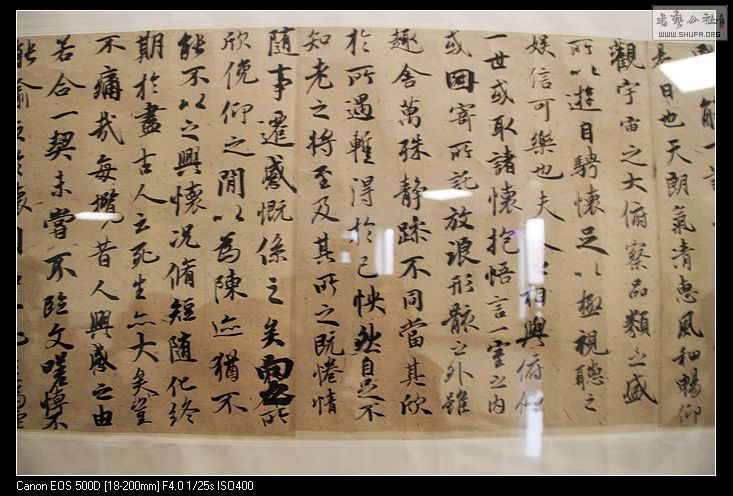 是日也天朗氣清惠風和暢仰
觀宇宙之大俯察品類之盛
所以遊目騁懷足以極視聽之
娛信可樂也夫人之相與俯仰
一世或取諸懷抱悟言一室之內
或因寄所託放浪形骸之外雖
趣舍萬殊静躁不同當其欣
於所遇暫得於己怏然自足不
知老之將至及其所之既惓情
隨事遷感慨係之矣向之所
欣俛仰之間以為陳迹猶不
能不以之興懷況脩短隨化終
期於盡古人云死生亦大矣豈
不痛哉每攬昔人興感之由
若合一契未嘗不臨文嗟悼不
能喻之於懷固
書藝公社
WWW.SHUFA.ORG
Canon EOS 500D [18-200mm] F4.0 1/25s ISO400